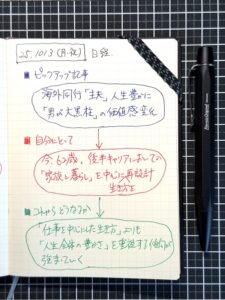 25.1013 (月・祝) 日経
■ピックアップ記事
海外同行「主夫」人生豊かに
「男は大黒柱」の価値感変化
■自分にとって
今、62歳、後半キャリアとしての
「家族と暮らし」を中心に再設計
生き方を
■これからどうなるか
「仕事を中心にした生き方」よりも
「人生全体の豊かさ」を重視する価値が
強まっていく